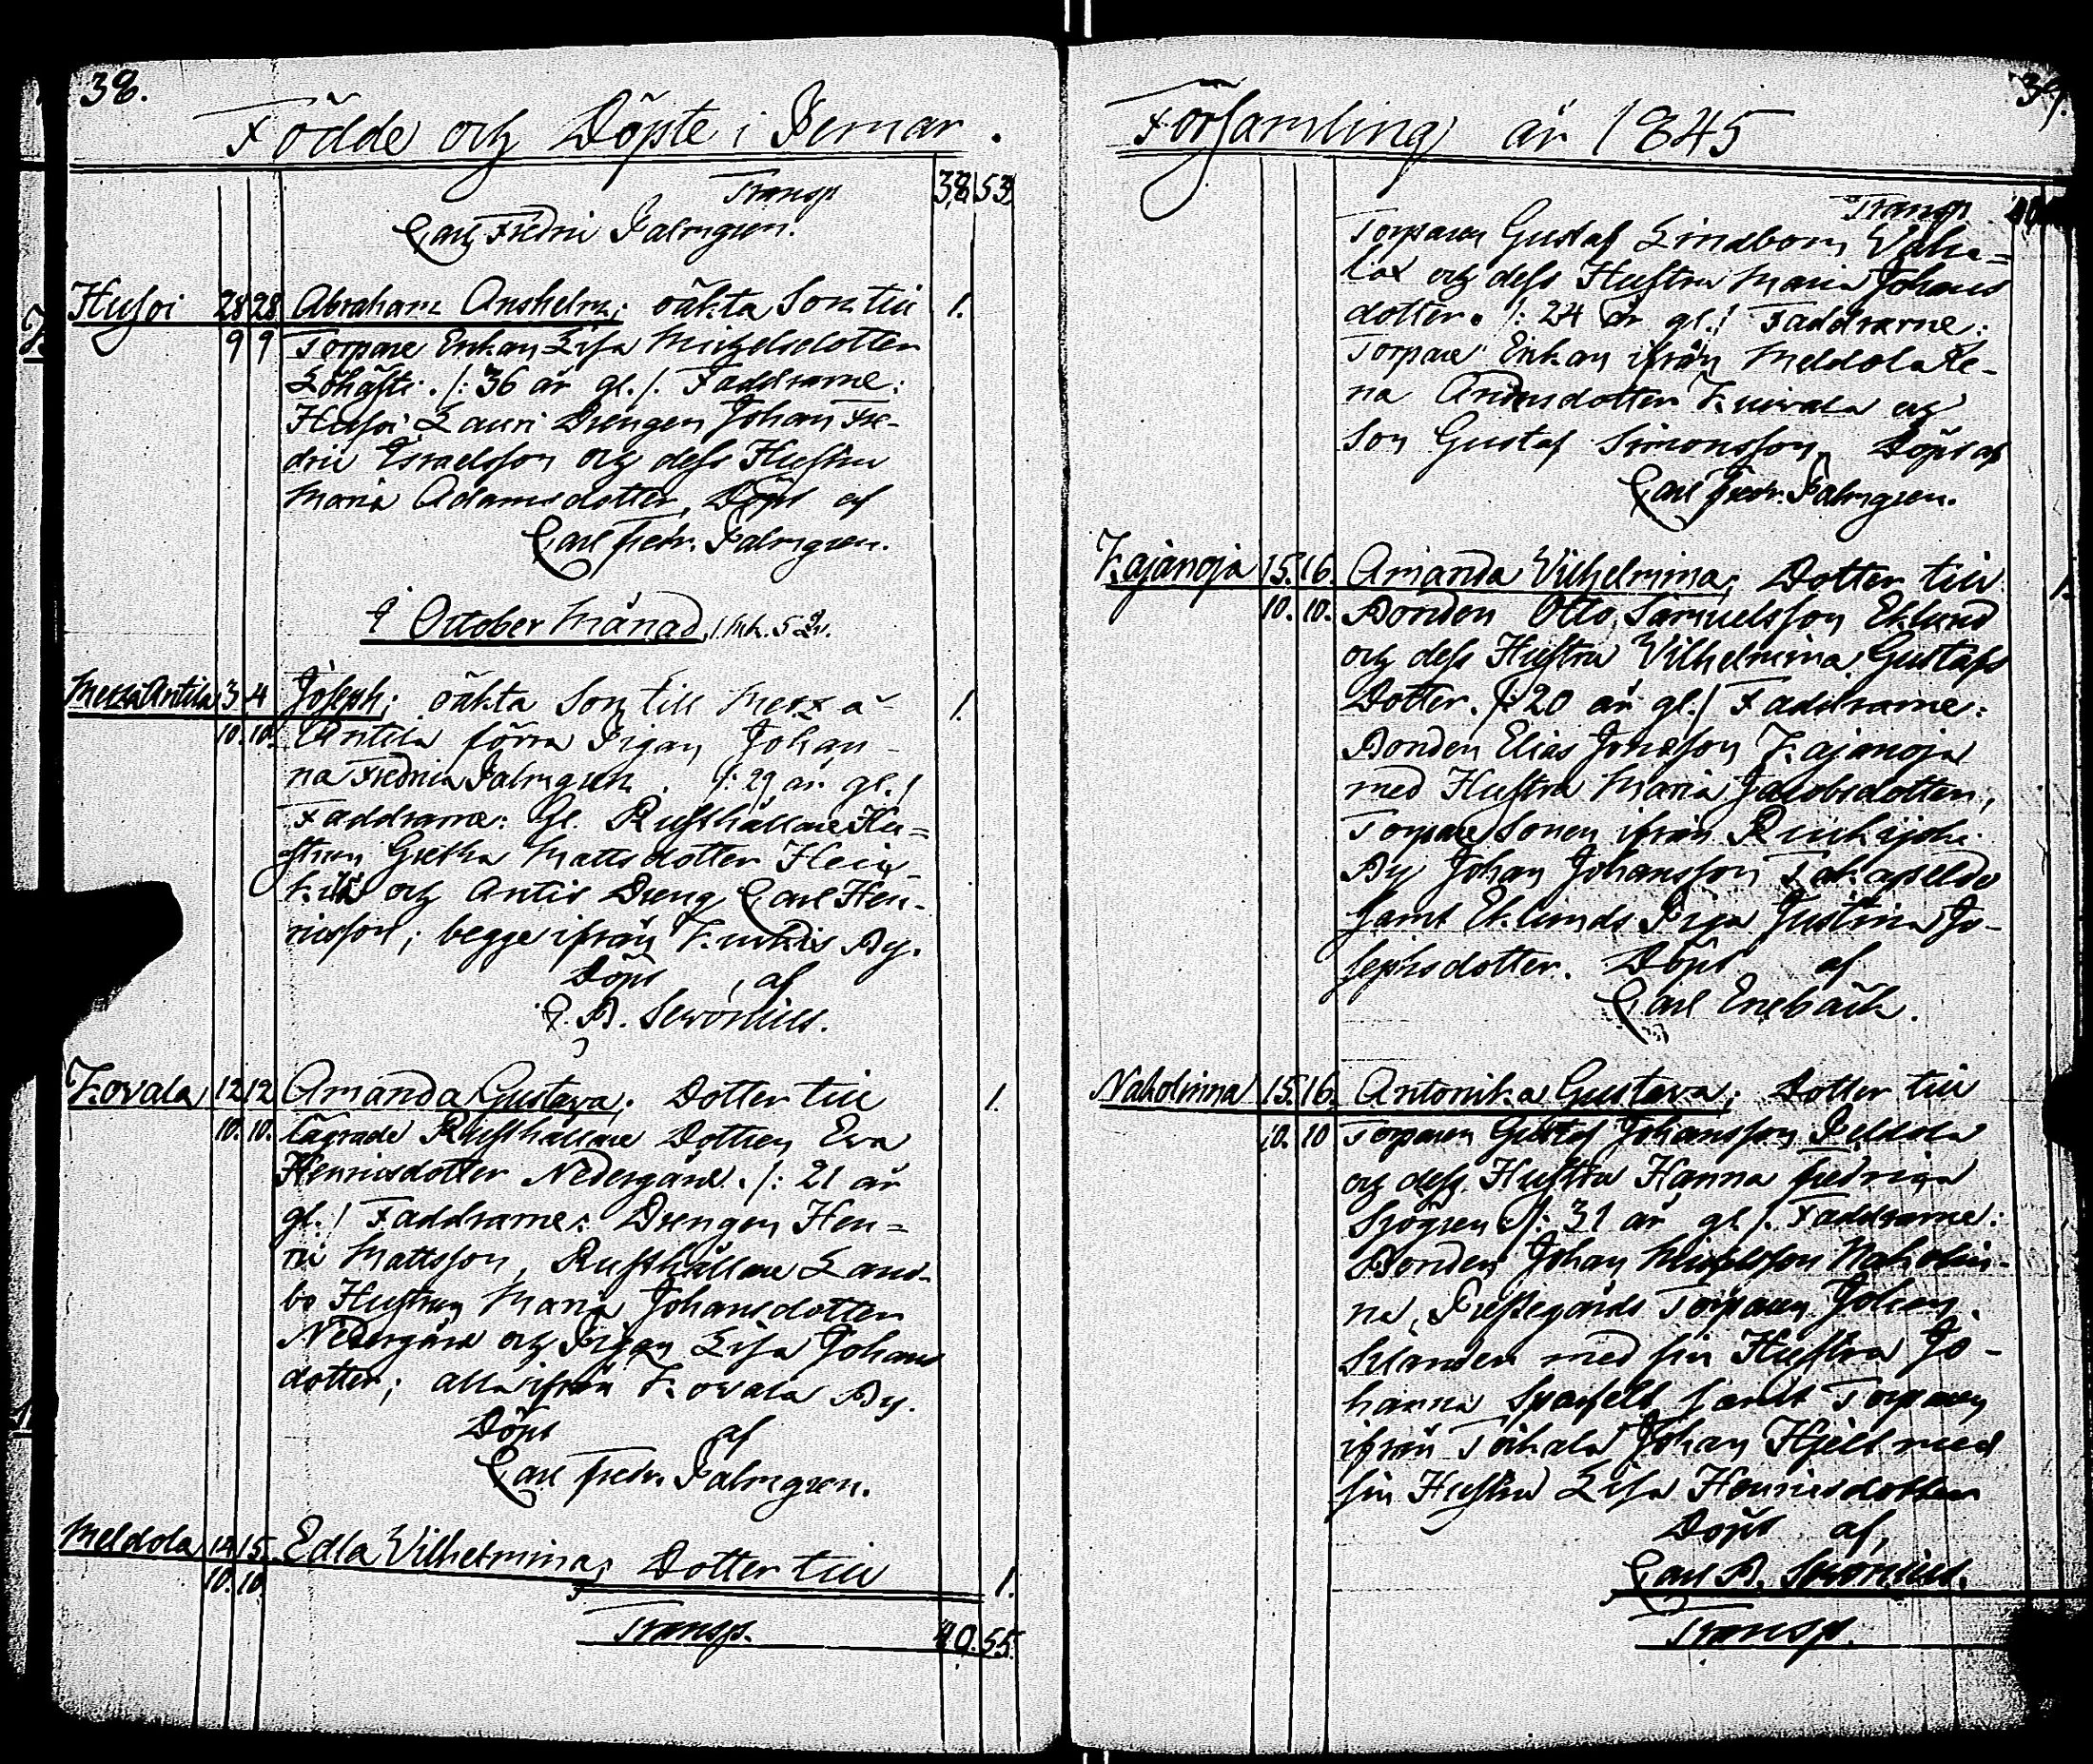 38.
Födde och Döpte i Pemar.
Transp 38 53
Carl Fredric Palmgren.
Husoi 28 28 Abraham Anshelm; oäkta Son till 1.
9 9 Torpare Enkan Lisa Michelsdotter
/: 36 år gl./. Faddrarne:
Husoi Lauri Drengen Johan Fre-
dric Israelsson och dess Hustru
Maria Adamsdotter, Döpt af
Carl Fredr. Palmgren.
October Månad,
3 4 Joseph; oäkta Son till 1.
10. 10. Antila förra Pigan Johan-
na Fredrica Palmgren. /: 29 år gl./
Faddrarne: Gl. Rusthållare Hu=
strun Gretha Mattsdotter
och Antis Dreng Carl Hen-
ricsson; begge ifrån By.
Döpt af
C. B. Sevonius.
Kovala 12 12 Amanda Gustava; Dotter till 1.
10. 10. Lägrade Rusthållare Dottren Eva
Henricsdotter Nedergård. /: 21 år
gl./ Faddrarne: Drengen Hen=
ric Mattsson, Rusthållare Land-
bo Hustrun Maria Johansdotter
Nedergård och Pigan Lisa Johans
dotter; alla ifrån Kovala By.
Döpt af
Carl Fredr. Palmgren.
Meldola 14 15. Edla Vilhelmina; Dotter till 1.
10. 10.
Transp. 40. 55.
39.
Församling år 1845
Transp 40
Torparen Gustaf Lindbom
och dess Hustru Maria Johans
dotter. /: 24 år gl./ Faddrarne:
Torpare Enkan ifrån Meldola Le-
na och
Son Gustaf Simonsson, Döpt af
Carl Fredr. Palmgren.
Kajanoja 15. 16. Amanda Vilhelmina; Dotter till 1.
10. 10. Bonden Otto Samuelsson Eklund
och dess Hustru Vilhelmina Gustafs
Dotter. /: 20 år gl./ Faddrarne:
Bonden Elias Jonasson Kajanoja
med Hustru Maria Jacobsdotter,
Torpare Sonen ifrån
By Johan Johansson
samt Eklunds Piga Justina Jo-
sephsdotter. Döpt af
Carl Enebäck.
Nakolinna 15. 16. Antonika Gustava; Dotter till
10. 10 Torparen Gustaf Johansson Peldola
och dess Hustru Hanna Fredrica
Sjögren /: 31 år gl./. Faddrarne:
Bonden Johan Michelsson Nakolin-
na, Prestegårds Torparen Johan
Silander med sin Hustru Jo-
hanna samt Torparen
ifrån Johan Hjelt med
sin Hustru Lisa Henricsdotter
Döpt af,
Carl B. Sevonius.
Transp.